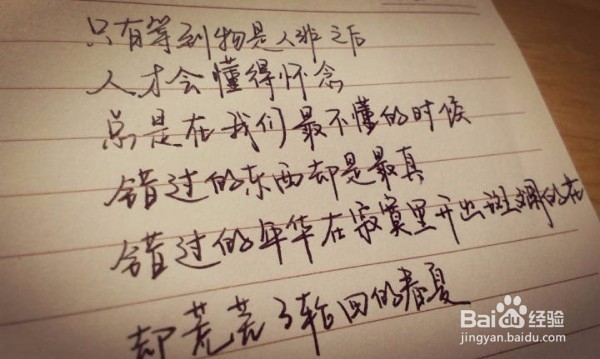 只有等到物是人非之后
人才会懂得怀念
总是在我们最不懂的时候
错过的东西却是最真
错过的年华在寂寞里开出斑斓的在
却荒芜了轮回的春夏
Baidu经验
jingyan.baidu.com